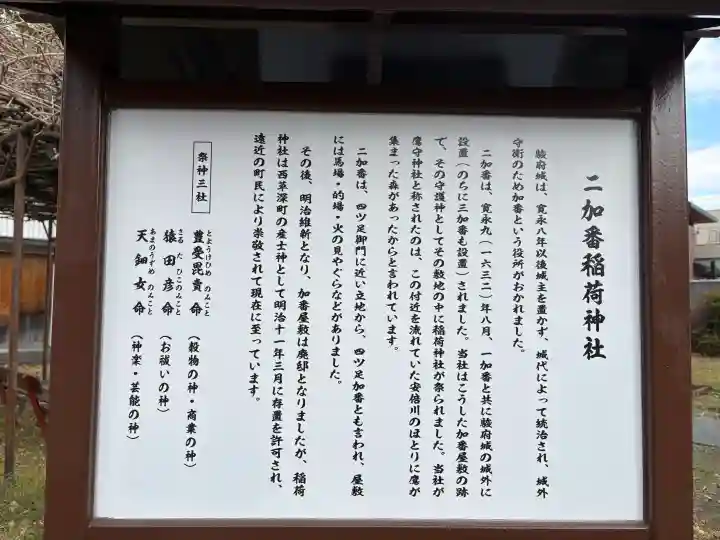 二加番稲荷神社
駿府城は、寛永八年以後城主を置かず、城代によって統治され、城外
守衛のため加番という役所がおかれました。
二加番は、寛永九(一六三二)年八月、一加番と共に駿府城の城外に
設置(のちに三加番も設置)されました。当社はこうした加番屋敷の跡
で、その守護神としてその敷地の中に稲荷神社が祭られました。当社が
鷹守神社と称されたのは、この付近を流れていた安倍川のほとりに鷹が
集まった森があったからと言われています。
二加番は、四ツ足御門に近い立地から、四ツ足加番とも言われ、屋敷
には馬場・的場・火の見やぐらなどがありました。
その後、明治維新となり、加番屋敷は廃邸となりましたが、稲荷
神社は西草深町の産土神として明治十一年三月に存置を許可され、
遠近の町民により崇敬されて現在に至っています。
祭神三社
豊受毘賣命 とようけひめのみこと (穀物の神・商業の神)
猿田彦命 さるたひこのみこと (お祓いの神)
天鈿女命 あまのうずめのみこと (神楽・芸能の神)